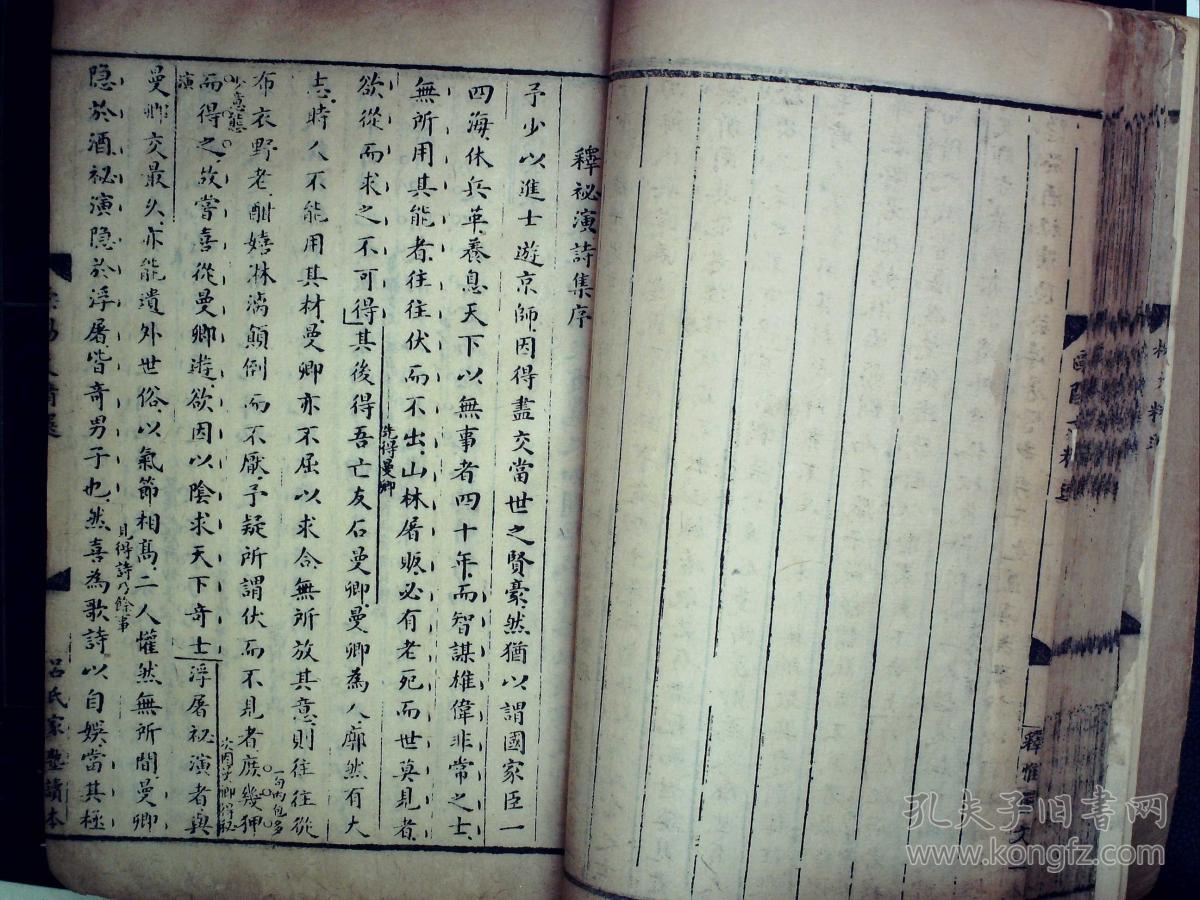 釋祕演詩集序
予少以進士遊京師因得盡交當世之賢豪然猶以謂國家臣一
四海休兵革養息天下以無事者四十年而智謀雄偉非常之士
無所用其能者往往伏而不出山林屠販必有老死而世莫見者
欲從而求之不可得其後得吾亡友石曼卿曼卿為人廓然有大
先得曼卿
志時人不能用其材曼卿亦不屈以求合無所放其意則往往從
布衣野老酣嬉淋漓顛倒而不厭予疑所謂伏而不見者庶幾狎
而得之故嘗喜從曼卿遊欲因以陰求天下奇士浮屠祕演者與
曼卿交最久亦能遺外世俗以氣節相高二人懽然無所間曼卿
隱於酒祕演隱於浮屠皆奇男子也然喜為歌詩以自娛當其極
見得詩乃餘事
呂氏家塾讀本
孔夫子旧书网
www.kongfz.com